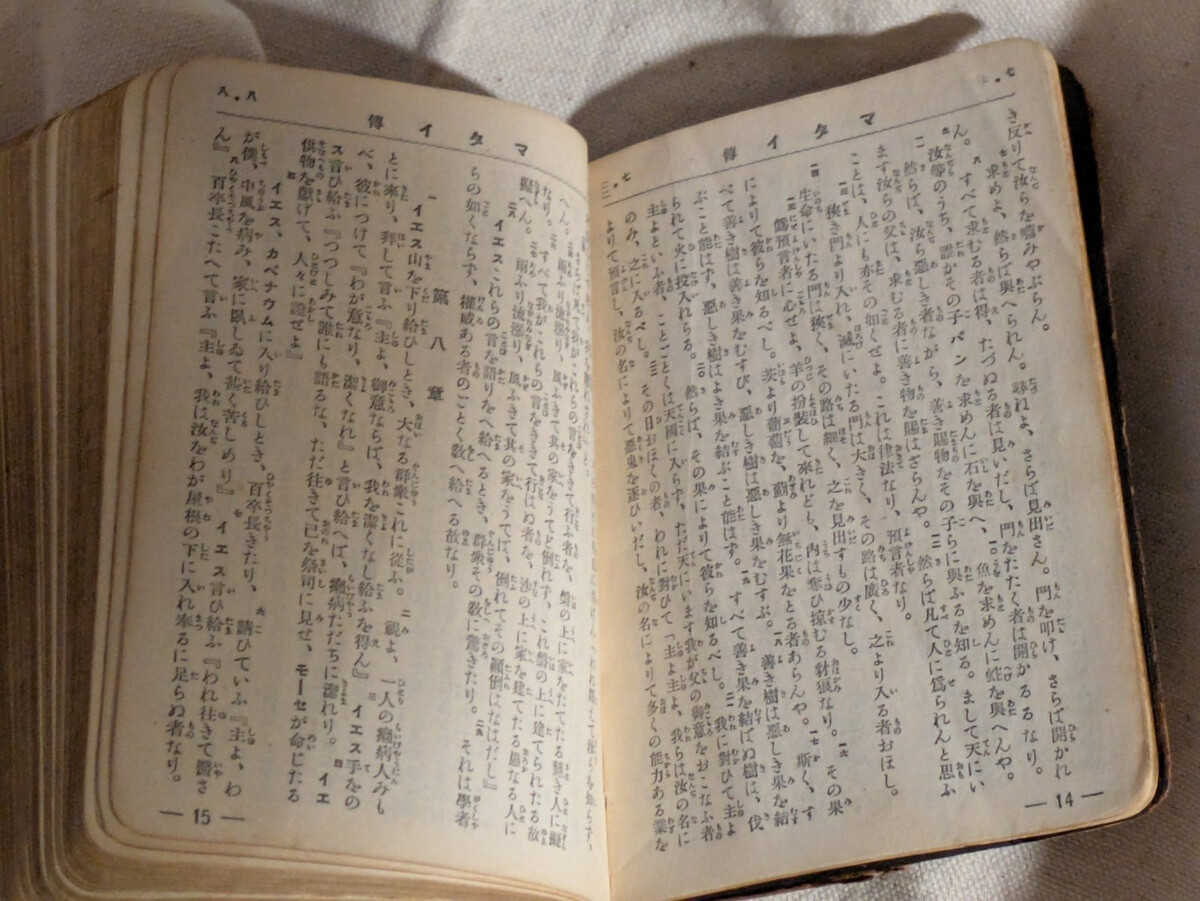 マタイ傳
き反りて汝らを嚙みやぶらん。
七 求めよ、然らば與へられん。尋ねよ、さらば見出さん。門を叩け、さらば開かれ
ん。八 すべて求むる者は得、たづぬる者は見いだし、門をたたく者は開かるるなり。
九 汝等のうち、誰かその子パンを求めんに石を與へ、一〇 魚を求めんに蛇を與へんや。
一一 然らば、汝ら惡しき者ながら、善き賜物をその子らに與ふるを知る。まして天にい
ます汝らの父は、求むる者に善き物を賜はざらんや。一二 然らば凡て人に爲られんと思ふ
ことは、人にも亦その如くせよ。これは律法なり、預言者なり。
一三 狹き門より入れ、滅にいたる門は大きく、その路は廣く、之より入る者おほし。
一四 生命にいたる門は狹く、その路は細く、之を見出すもの少なし。
一五 僞預言者に心せよ、羊の扮裝して來れども、内は奪ひ掠むる豺狼なり。一六 その果
によりて彼らを知るべし。茨より葡萄を、薊より無花果をとる者あらんや。一七 斯く、す
べて善き樹は善き果をむすび、惡しき樹は惡しき果をむすぶ。一八 善き樹は惡しき果を結
ぶこと能はず、惡しき樹はよき果を結ぶこと能はず。一九 すべて善き果を結ばぬ樹は、伐
られて火に投入れらる。二〇 然らば、その果によりて彼らを知るべし。二一 我に對ひて主よ
主よといふ者、ことごとくは天國に入らず、ただ天にいます我が父の御意をおこなふ者
のみ、之に入るべし。二二 その日おほくの者、われに對ひて「主よ主よ、我らは汝の名に
よりて預言し、汝の名によりて惡鬼を逐ひいだし、汝の名によりて多くの能力ある業を
— 14 —
マタイ傳
八・八
我がこれらの言をききて行ふ者を、磐の上に家をたてたる慧き人に擬
へん。二五 雨ふり流漲り、風ふきて其の家をうてど倒れず、これ磐の上に建てられたる故
なり。二六 すべて我がこれらの言をききて行はぬ者を、沙の上に家を建てたる愚なる人に
擬へん。二七 雨ふり流漲り、風ふきて其の家をうてば、倒れてその顚倒はなはだし』
二八 イエスこれらの言を語りをへ給へるとき、群衆その敎に驚きたり。二九 それは學者
らの如くならず、權威ある者のごとく敎へ給へる故なり。
第八章
一 イエス山を下り給ひしとき、大なる群衆これに從ふ。二 視よ、一人の癩病人みも
とに來り、拜して言ふ『主よ、御意ならば、我を潔くなし給ふを得ん』三 イエス手をの
べ、彼につけて『わが意なり、潔くなれ』と言ひ給へば、癩病ただちに潔れり。四 イエ
ス言ひ給ふ『つつしみて誰にも語るな、ただ往きて己を祭司に見せ、モーセが命じたる
供物を獻げて、人々に證せよ』
五 イエス、カペナウムに入り給ひしとき、百卒長きたり、六 請ひていふ『主よ、わ
が僕、中風を病み、家に臥しゐて甚く苦しめり』七 イエス言ひ給ふ『われ往きて醫さ
ん』八 百卒長こたへて言ふ『主よ、我は汝をわが屋根の下に入れ奉るに足らぬ者なり。
— 15 —